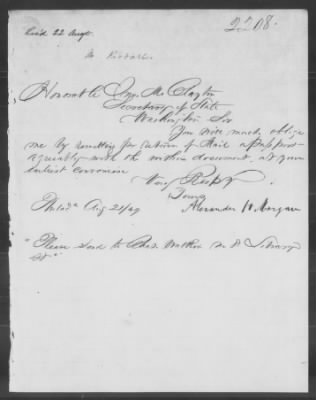 Rec'd 22 Augt.
2208.
Honorable Jno. M. Clayton
Secretary of State
Washington Sir
You will much oblige
me by remitting pr return of Mail a passport
agreeably with the within document, at your
earliest convenience
Very Resp'y
Yours
Alexander W. Morgan
Philada Aug 21/49
"Please send to Chas. Walker No 8 Library
St"